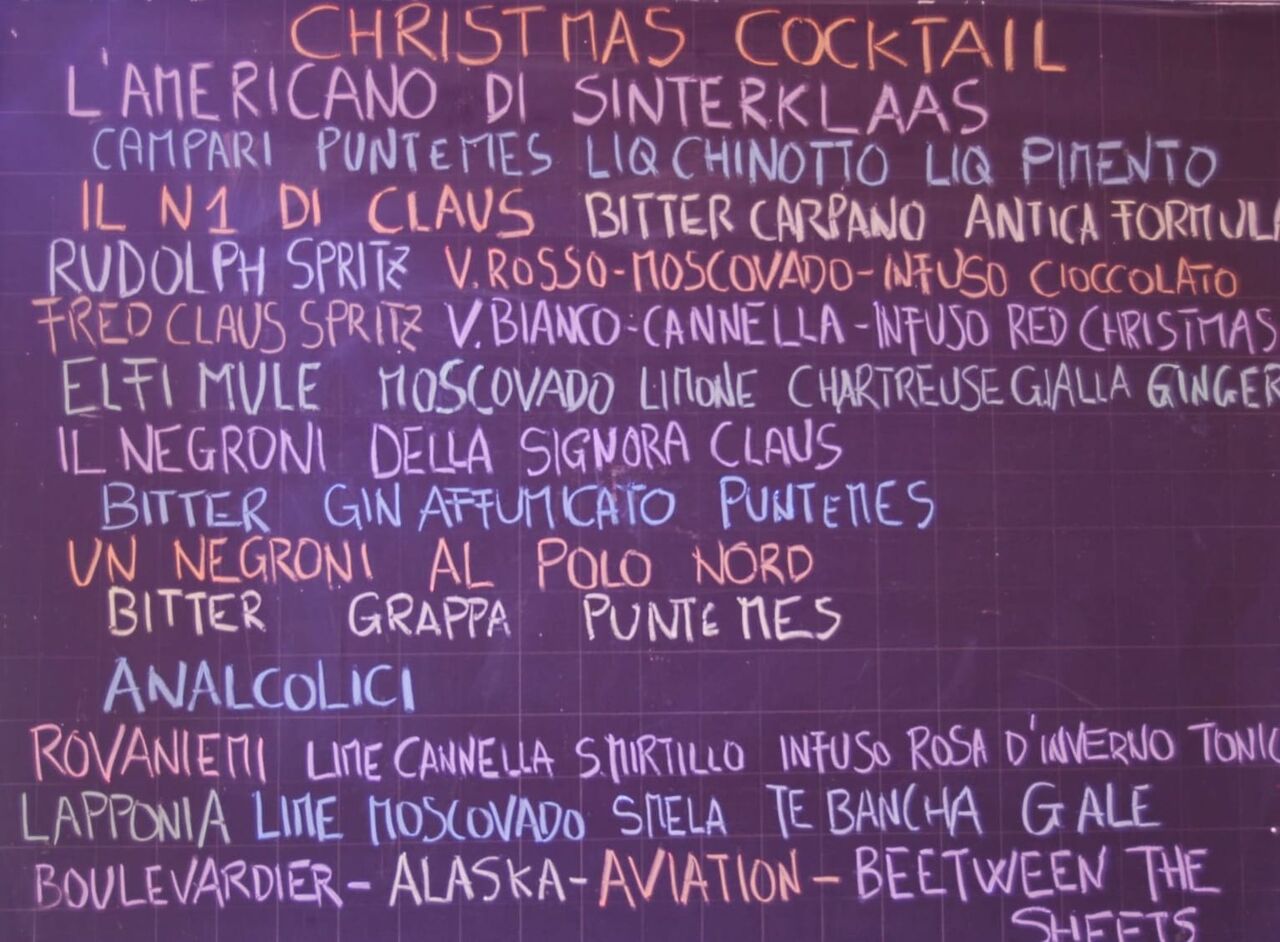 CHRISTMAS COCKTAIL
L'AMERICANO DI SINTERKLAAS
CAMPARI PUNTEMES LIQ CHINOTTO LIQ PIMENTO
IL N1 DI CLAUS BITTER CARPANO ANTICA FORMULA
RUDOLPH SPRITZ V.ROSSO-MOSCOVADO-INFUSO CIOCCOLATO
FRED CLAUS SPRITZ V.BIANCO-CANNELLA-INFUSO RED CHRISTMAS
ELFI MULE MOSCOVADO LIMONE CHARTREUSE GIALLA GINGER
IL NEGRONI DELLA SIGNORA CLAUS
BITTER GIN AFFUMICATO PUNTEMES
UN NEGRONI AL POLO NORD
BITTER GRAPPA PUNTEMES
ANALCOLICI
ROVANIEMI LIME CANNELLA S.MIRTILLO INFUSO ROSA D'INVERNO TONIC
LAPPONIA LIME MOSCOVADO SMELA TE BANCHA G ALE
BOULEVARDIER-ALASKA-AVIATION-BEETWEEN THE
SHEETS